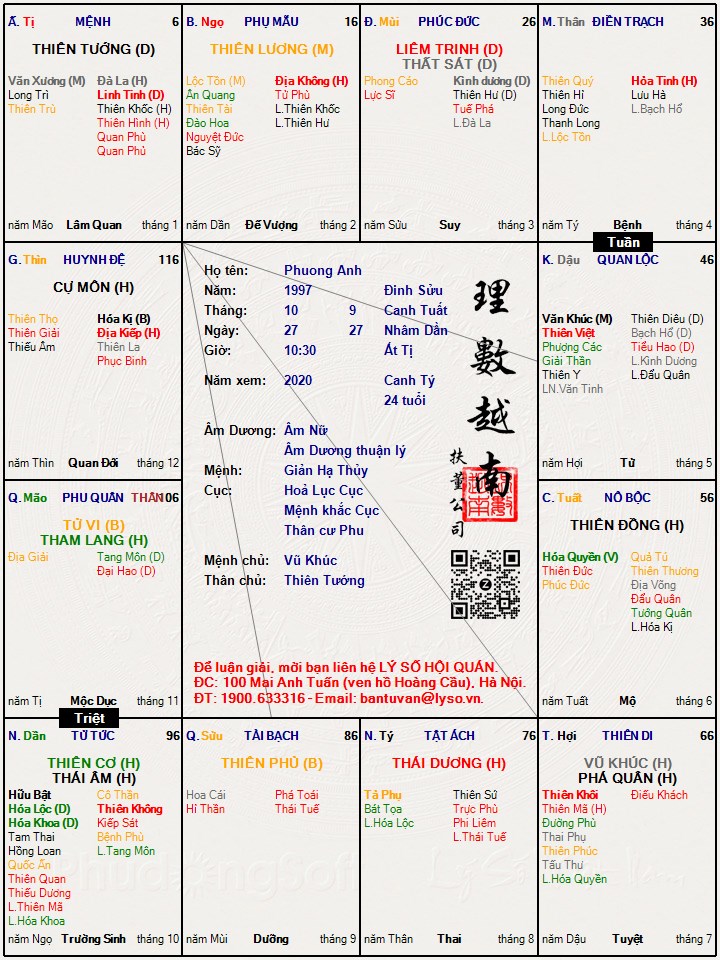 Ấ. Tị MỆNH 6
THIÊN TƯỚNG (D)
Văn Xương (M) Đà La (H)
Long Trì Linh Tinh (D)
Thiên Trù Thiên Khốc (H)
Thiên Hình (H)
Quan Phù
Quan Phủ
năm Mão Lâm Quan tháng 1
B. Ngọ PHỤ MẪU 16
THIÊN LƯƠNG (M)
Lộc Tồn (M) Địa Không (H)
Ân Quang Tử Phù
Thiên Tài L.Thiên Khốc
Đào Hoa L.Thiên Hư
Nguyệt Đức
Bác Sỹ
năm Dần Đế Vượng tháng 2
Đ. Mùi PHÚC ĐỨC 26
LIÊM TRINH (D)
THẤT SÁT (D)
Phong Cáo Kình dương (D)
Lực Sĩ Thiên Hư (D)
Tuế Phá
L.Đà La
năm Sửu Suy tháng 3
M. Thân ĐIỀN TRẠCH 36
Thiên Quý Hỏa Tinh (H)
Thiên Hỉ Lưu Hà
Long Đức L.Bạch Hổ
Thanh Long
L.Lộc Tồn
năm Tý Bệnh tháng 4
Tuần
G. Thìn HUYNH ĐỆ 116
CỰ MÔN (H)
Thiên Thọ Hóa Kị (B)
Thiên Giải Địa Kiếp (H)
Thiếu Âm Thiên La
Phục Binh
năm Thìn Quan Đới tháng 12
Họ tên: Phuong Anh
Năm: 1997 Đinh Sửu
Tháng: 10 9 Canh Tuất
Ngày: 27 27 Nhâm Dần
Giờ: 10:30 Ất Tị
Năm xem: 2020 Canh Tý
24 tuổi
Âm Dương: Âm Nữ
Âm Dương thuận lý
Mệnh: Giản Hạ Thủy
Cục: Hoả Lục Cục
Mệnh khắc Cục
Thân cư Phu
Mệnh chủ: Vũ Khúc
Thân chủ: Thiên Tướng
理數越南
扶董公司
Để luận giải, mời bạn liên hệ LÝ SỐ HỘI QUÁN.
ĐC: 100 Mai Anh Tuấn (ven hồ Hoàng Cầu), Hà Nội.
ĐT: 1900.633316 - Email: bantuvan@lyso.vn.
K. Dậu QUAN LỘC 46
Văn Khúc (M) Thiên Diêu (D)
Thiên Việt Bạch Hổ (D)
Phượng Các Tiểu Hao (D)
Giải Thần L.Kình Dương
Thiên Y L.Đẩu Quân
LN.Văn Tinh
năm Hợi Tử tháng 5
Q. Mão PHU QUÂN THÂN 106
TỬ VI (B)
THAM LANG (H)
Địa Giải Tang Môn (D)
Đại Hao (D)
năm Tị Mộc Dục tháng 11
Triệt
C. Tuất NÔ BỘC 56
THIÊN ĐỒNG (H)
Hóa Quyền (V) Quả Tú
Thiên Đức Thiên Thương
Phúc Đức Địa Võng
Đẩu Quân
Tướng Quân
L.Hóa Kị
năm Tuất Mộ tháng 6
N. Dần TỬ TỨC 96
THIÊN CƠ (H)
THÁI ÂM (H)
Hữu Bật Cô Thần
Hóa Lộc (D) Thiên Không
Hóa Khoa (D) Kiếp Sát
Tam Thai Bệnh Phù
Hồng Loan L.Tang Môn
Quốc Ấn
Thiên Quan
Thiếu Dương
L.Thiên Mã
L.Hóa Khoa
năm Ngọ Trường Sinh tháng 10
Q. Sửu TÀI BẠCH 86
THIÊN PHỦ (B)
Hoa Cái Phá Toái
Hỉ Thần Thái Tuế
năm Mùi Dưỡng tháng 9
N. Tý TẬT ÁCH 76
THÁI DƯƠNG (H)
Tả Phụ Thiên Sứ
Bát Tọa Trực Phù
L.Hóa Lộc Phi Liêm
L.Thái Tuế
năm Thân Thai tháng 8
T. Hợi THIÊN DI 66
VŨ KHÚC (H)
PHÁ QUÂN (H)
Thiên Khôi Điếu Khách
Thiên Mã (H)
Đường Phù
Thai Phụ
Thiên Phúc
Tấu Thư
L.Hóa Quyền
năm Dậu Tuyệt tháng 7